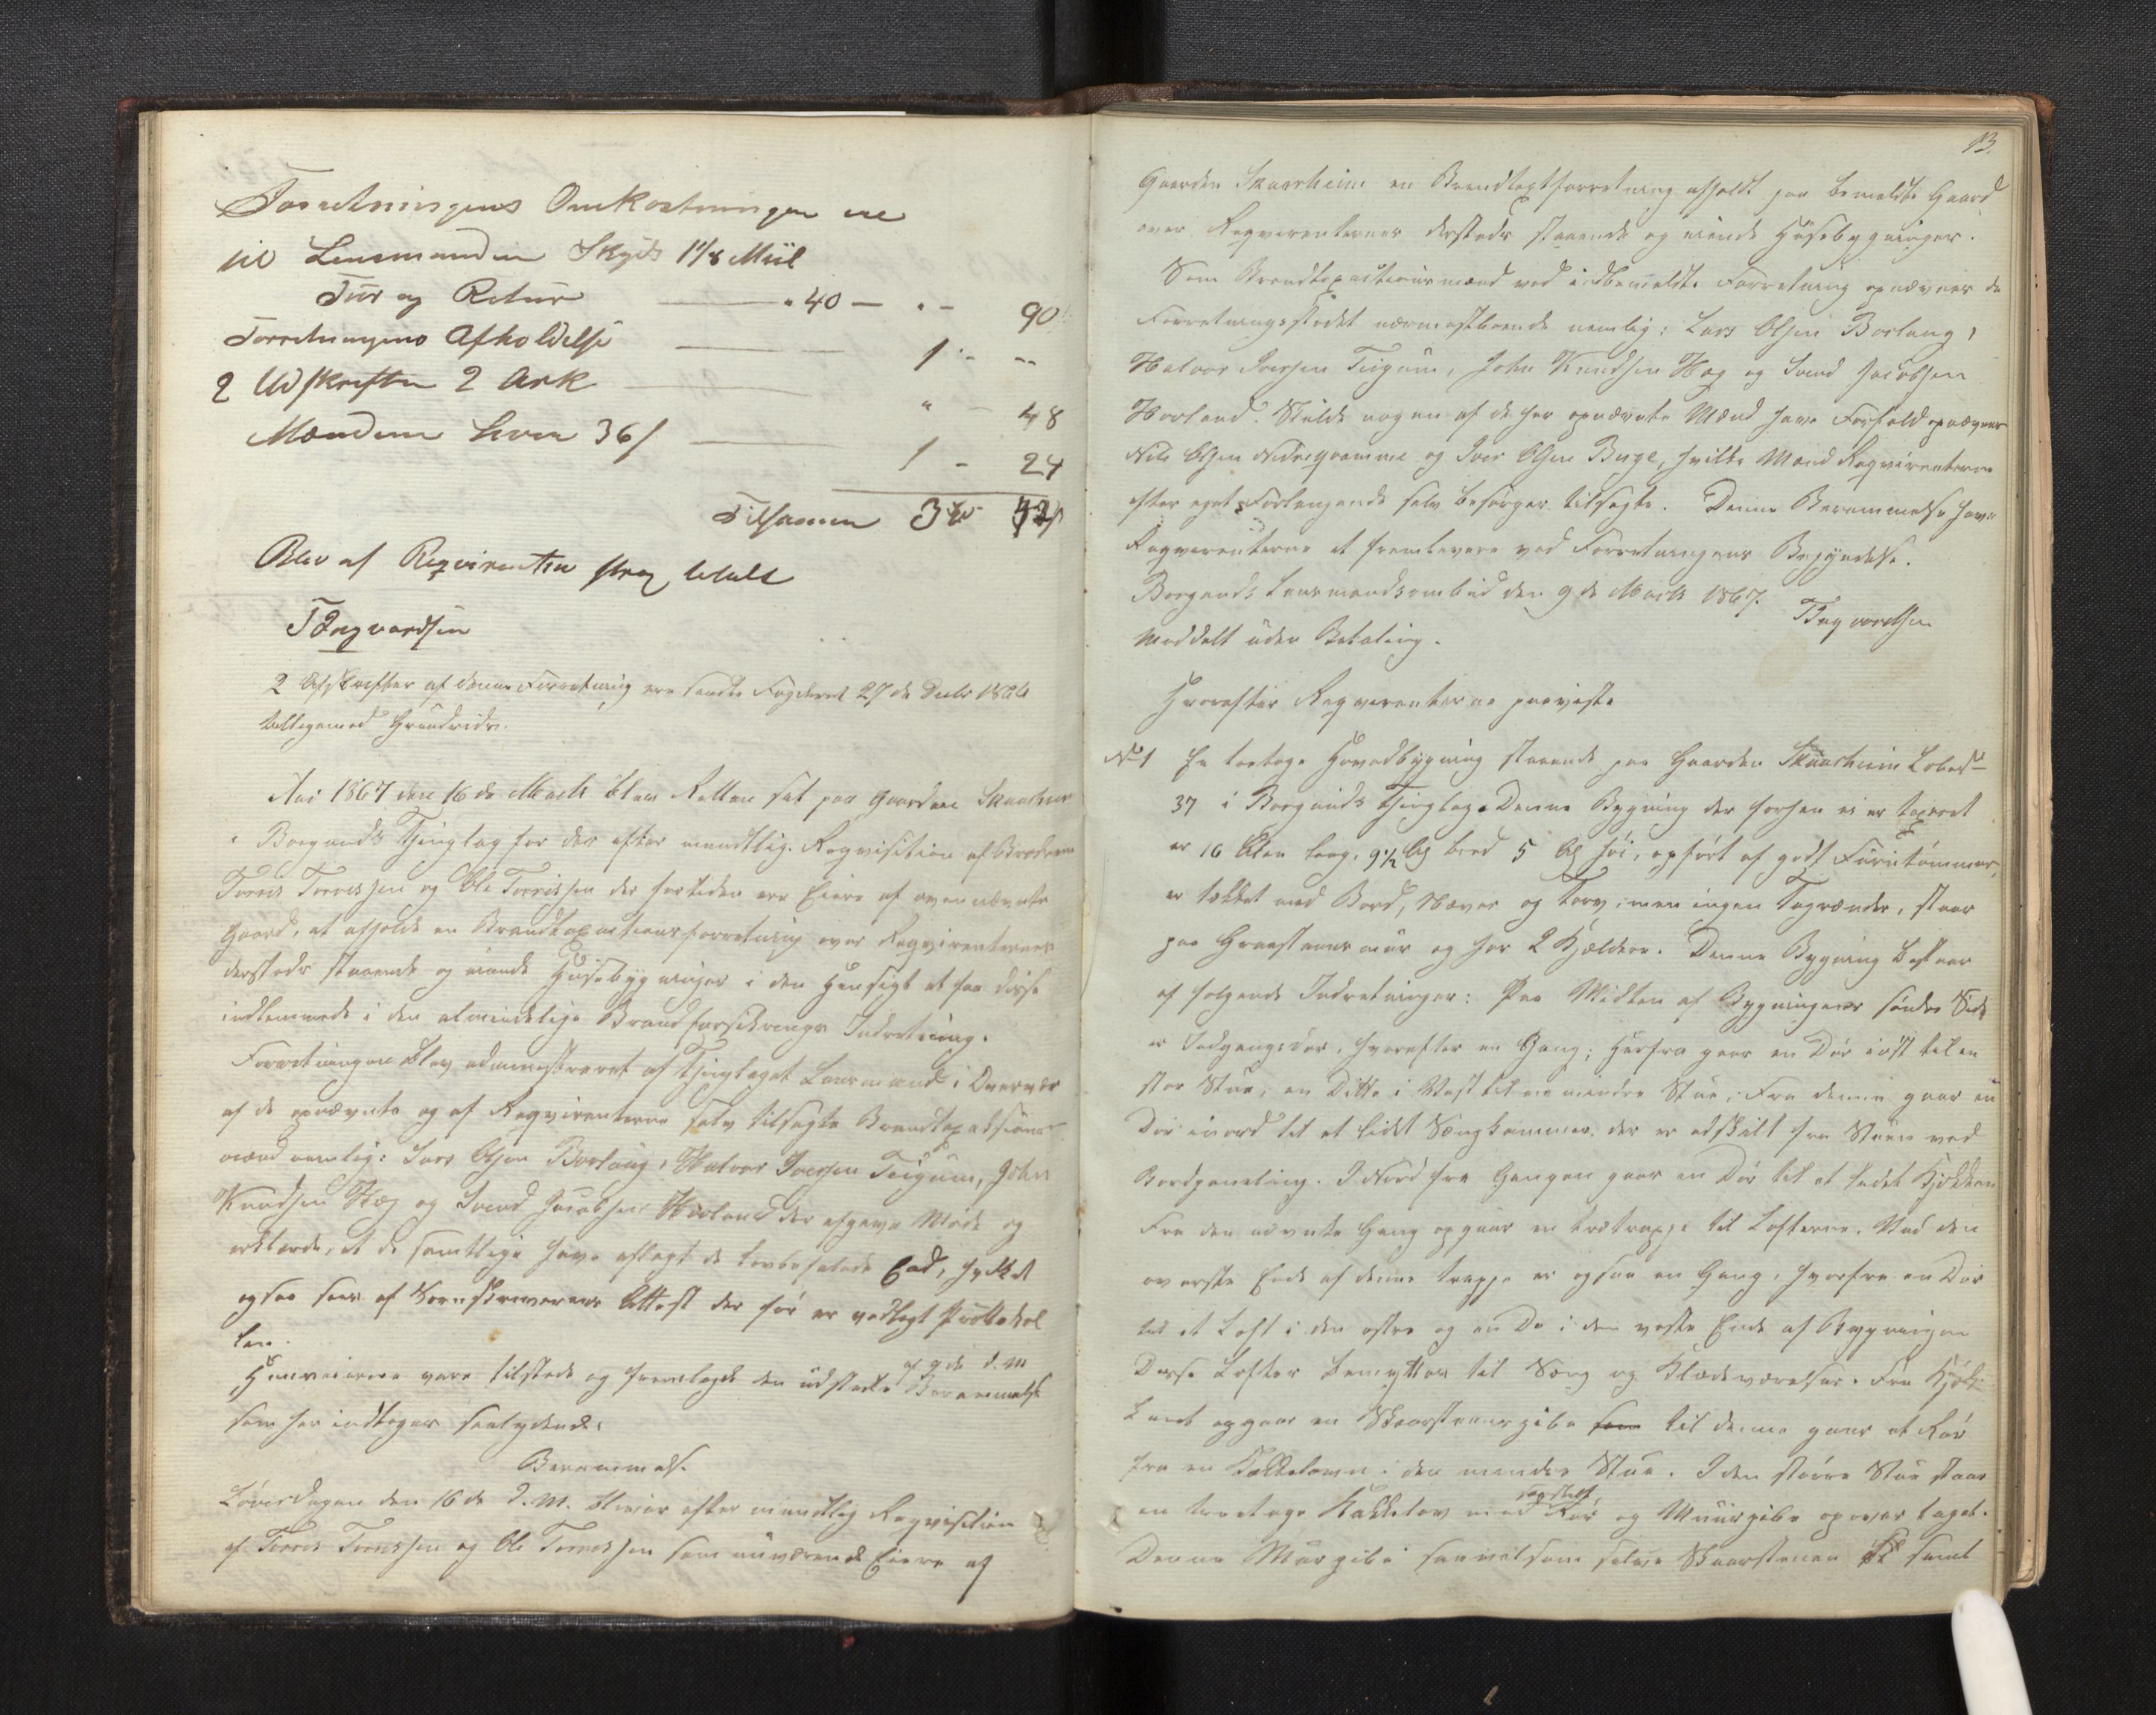 Forretningens Omkostninger ere
til Lensmanden Skyds 1 1/8 Miil
Tur og Retur — " 40 — " — 90
Forretningens Afholdelse — 1 " — "
2 Udskrifter 2 Ark — " — 48
Mændene hver 36 s — 1 — 24
Tilsammen 3
Blev af Reqvirenten strax betalt
TIngvardsen
2 Afskrifter af denne Forretning ere sendte Fogderiet 27de Decbr 1866
tilligemed Grundrids.
Aar 1867 den 16de Marts blev Retten sat paa Gaarden Skaarheim
i Borgunds Thinglag for der efter mundtlig Reqvisition af Brødrene
Torris Torrissen og Ole Torrissen der fortiden ere Eiere af ovennævnte
Gaard, at afholde en Brandtaxationsforretning over Reqvirenternes
dersteds staaende og eiende Huusebygninger i den Hensigt at faa disse
indlemmede i den almindelige Brandforsikrings Indretning.
Forretningen blev administreret af Thinglagets Lensmand i Overvær
af de opnævnte og af Reqvirenterne selv tilsagte Brandtaxations
mænd nemlig: Lars Olsen Borlaug, Halvor Iversen Teigum, John
Knudsen Hæg og Svend Jacobsen Hovland der afgave Møde og
erklærede, at de samtlige have aflagt de lovbefalede Eed, hvilket
ogsaa sees af Sorenskriverens Attest der før er vedlagt Protokol
len.
Huuseierne vare tilstede og fremlagde den udstedte af 9de d. M. Berammelse
som her indtages saalydende:
Berammelse
Løverdagen den 16de d. M. bliver efter mundtlig Reqvisition
af Torris Torrissen og Ole Torrissen som nuværende Eiere af
13.
Gaarden Skaarheim en Brandtaxtforretning afholdt paa bemeldte Gaard
over Reqvirenternes dersteds staaende og eiende Huusebygninger.
Som Brandtaxationsmænd ved indbemeldte Forretning opnævnes de
Forretningsstedet nærmestboende nemlig: Lars Olsen Borlaug,
Halvor Iversen Teigum, John Knudsen Hæg og Svend Jacobsen
Hovland. Skulde nogen af de her opnævnte Mænd have Forfald opnævnes
Nils Olsen Nedregramme og Iver Olsen Buge, hvilke Mænd Reqvirenterne
efter eget Forlangende selv besørger tilsagte. Denne Berammelse have
Reqvirenterne at fremlevere ved Forretningens Begyndelse.
Borgunds Lensmandsombud den 9de Marts 1867. TIngvardsen
Meddelt uden Betaling.
Hvorefter Reqvirenterne paaviste
No 1 En toetages Hovedbygning staaende paa Gaarden Skaarheim Løbe No
37 i Borgunds Thinglag. Denne Bygning der forhen ei er taxeret
er 16 Alen lang, 9 1/2 Al bred 5 Al høi, opført af godt Furutømmer,
er tækket med Bord, Næver og Torv, men ingen Tagrænder, staar
paa Graasteensmur og har 2 Kjældere. Denne Bygning bestaar
af følgende Indretninger: Paa Midten af Bygningens søndre Side
er Indgangsdør, hvorefter en Gang; herfra gaar en Dør i øst til en
stor Stue, en Ditto i Vest til en mindre Stue; Fra denne gaar en
Dør i nord til et lidet Sengkammer, der er adskilt fra Stuen ved
Bordpaneling. I Nord fra Gangen gaar en Dør til et lidet Kjøkken
Fra den nævnte Gang opgaar en trætrappe til Lofterne. Ved den
øverste Ende af denne trappe er ogsaa en Gang, hvorfra en Dør
til et Loft i den østre og en Do i den vestre Ende af Bygningen
Disse Lofter benyttes til Seng og Klædeværelser. Fra Kjøk-
kenet opgaar en Skorsteenspibe som til denne gaar et Rør
fra en Kakkelovn i den mindre Stue. I den større Stue staar
en treetages Kakkelovn med Rør og Muurpibe op over taget.
Denne Murpibe saavelsom selve Skorstenen samt